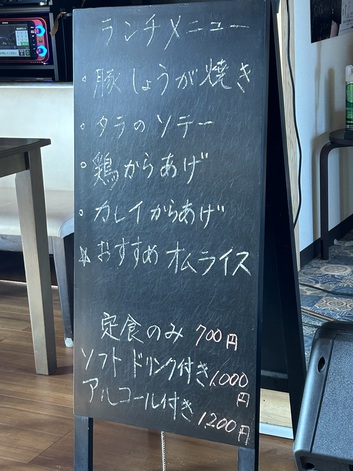 ランチメニュー
◦豚しょうが焼き
◦タラのソテー
◦鶏からあげ
◦カレイからあげ
☆おすすめ オムライス
定食のみ 700円
ソフトドリンク付き1,000円
アルコール付き 1200円